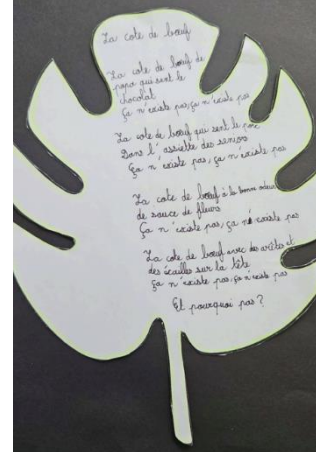 La cote de bœuf
La cote de bœuf de
papa qui sent le
chocolat
Ça n'existe pas, ça n'existe pas
La cote de bœuf qui sent le
Dans l'assiette des seniors
Ça n'existe pas, ça n'existe pas
La cote de bœuf à la bonne odeur
de sauce de fleurs
Ça n'existe pas, ça n'existe pas
La cote de bœuf avec des arêtes et
des écailles sur la tête
Ça n'existe pas, ça n'existe pas
Et pourquoi pas ?